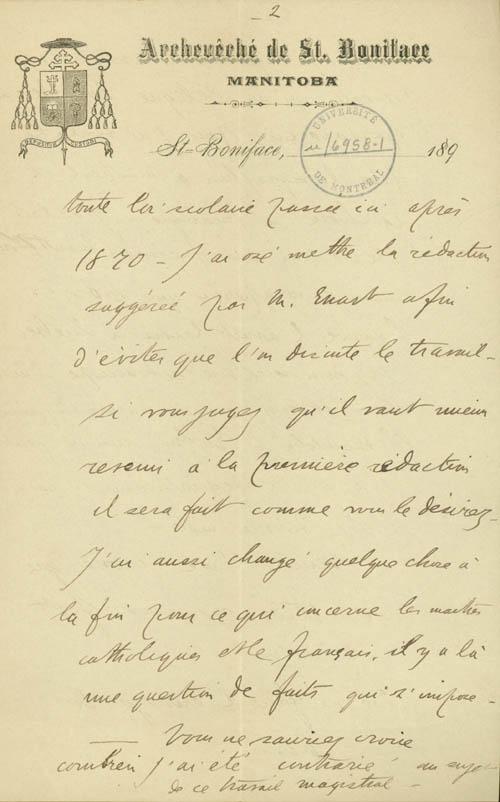 - 2
Archevêché de St. Boniface
MANITOBA
UNIVERSITÉ
DE MONTRÉAL
/6958-1
St-Boniface, 189
toute loi scolaire passée ici après
1870 - J'ai osé mettre la rédaction
suggérée par M. Ewart afin
d'éviter que l'on discute le travail -
si vous jugez qu'il vaut mieux
revenir à la première rédaction
il sera fait comme vous le désirez -
J'ai aussi changé quelque chose à
la fin pour ce qui concerne les maîtres
catholiques et le français, il y a là
une question de faits qui s'impose -
Vous ne sauriez croire
combien j'ai été contrarié au sujet
de ce travail magistral -